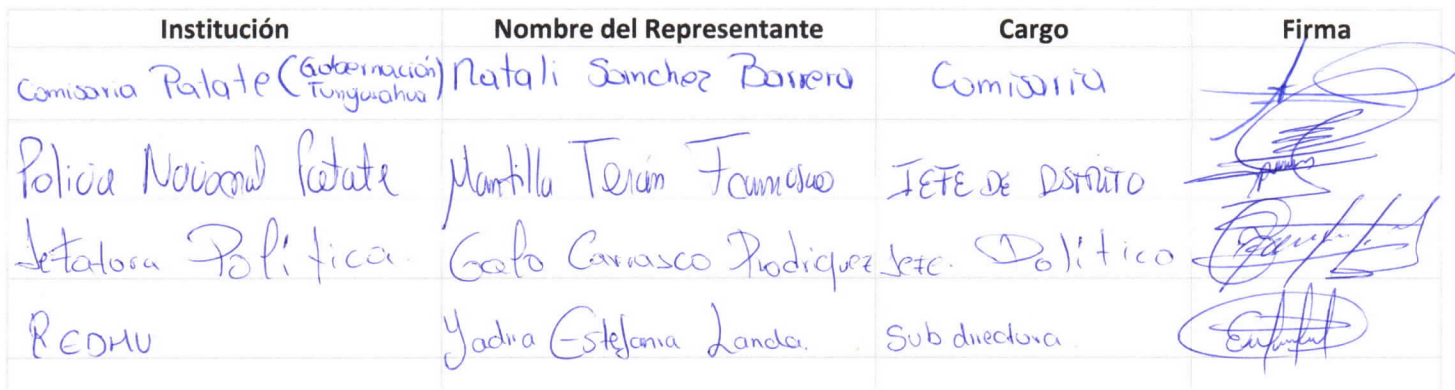 Institución Nombre del Representante Cargo Firma
Comisaria Patate (Gobernación Tungurahua) Natali Sanchez Barrera Comisaria
Policia Nacional Patate Mantilla Terán Francisco JEFE DE DISTRITO
Jefatura Política. Galo Carrasco Rodriguez Jefe. Político
REDMU Yadira Estefania Landa. Sub directora